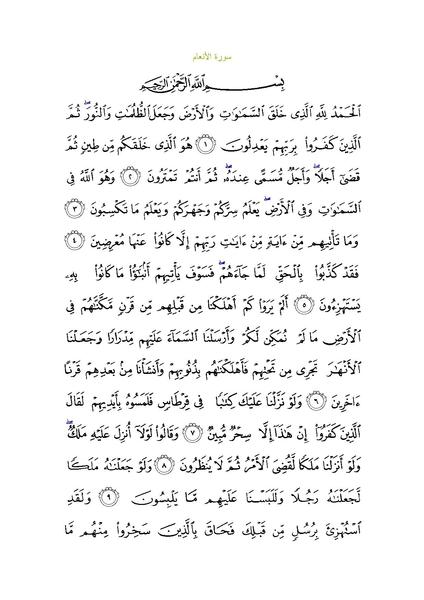 سورة الأنعام
بِسْمِ ٱللَّهِ ٱلرَّحْمَٰنِ ٱلرَّحِيمِ
ٱلْحَمْدُ لِلَّهِ ٱلَّذِى خَلَقَ ٱلسَّمَٰوَٰتِ وَٱلْأَرْضَ وَجَعَلَ ٱلظُّلُمَٰتِ وَٱلنُّورَ ۖ ثُمَّ
ٱلَّذِينَ كَفَرُوا۟ بِرَبِّهِمْ يَعْدِلُونَ ﴿١﴾ هُوَ ٱلَّذِى خَلَقَكُم مِّن طِينٍ ثُمَّ
قَضَىٰٓ أَجَلًا ۖ وَأَجَلٌ مُّسَمًّى عِندَهُۥ ۖ ثُمَّ أَنتُمْ تَمْتَرُونَ ﴿٢﴾ وَهُوَ ٱللَّهُ فِى
ٱلسَّمَٰوَٰتِ وَفِى ٱلْأَرْضِ ۖ يَعْلَمُ سِرَّكُمْ وَجَهْرَكُمْ وَيَعْلَمُ مَا تَكْسِبُونَ ﴿٣﴾
وَمَا تَأْتِيهِم مِّنْ ءَايَةٍ مِّنْ ءَايَٰتِ رَبِّهِمْ إِلَّا كَانُوا۟ عَنْهَا مُعْرِضِينَ ﴿٤﴾
فَقَدْ كَذَّبُوا۟ بِٱلْحَقِّ لَمَّا جَآءَهُمْ ۖ فَسَوْفَ يَأْتِيهِمْ أَنۢبَٰٓؤُا۟ مَا كَانُوا۟ بِهِۦ
يَسْتَهْزِءُونَ ﴿٥﴾ أَلَمْ يَرَوْا۟ كَمْ أَهْلَكْنَا مِن قَبْلِهِم مِّن قَرْنٍ مَّكَّنَّٰهُمْ فِى
ٱلْأَرْضِ مَا لَمْ نُمَكِّن لَّكُمْ وَأَرْسَلْنَا ٱلسَّمَآءَ عَلَيْهِم مِّدْرَارًا وَجَعَلْنَا
ٱلْأَنْهَٰرَ تَجْرِى مِن تَحْتِهِمْ فَأَهْلَكْنَٰهُم بِذُنُوبِهِمْ وَأَنشَأْنَا مِنۢ بَعْدِهِمْ قَرْنًا
ءَاخَرِينَ ﴿٦﴾ وَلَوْ نَزَّلْنَا عَلَيْكَ كِتَٰبًا فِى قِرْطَاسٍ فَلَمَسُوهُ بِأَيْدِيهِمْ لَقَالَ
ٱلَّذِينَ كَفَرُوٓا۟ إِنْ هَٰذَآ إِلَّا سِحْرٌ مُّبِينٌ ﴿٧﴾ وَقَالُوا۟ لَوْلَآ أُنزِلَ عَلَيْهِ مَلَكٌ ۖ
وَلَوْ أَنزَلْنَا مَلَكًا لَّقُضِىَ ٱلْأَمْرُ ثُمَّ لَا يُنظَرُونَ ﴿٨﴾ وَلَوْ جَعَلْنَٰهُ مَلَكًا
لَّجَعَلْنَٰهُ رَجُلًا وَلَلَبَسْنَا عَلَيْهِم مَّا يَلْبِسُونَ ﴿٩﴾ وَلَقَدِ
ٱسْتُهْزِئَ بِرُسُلٍ مِّن قَبْلِكَ فَحَاقَ بِٱلَّذِينَ سَخِرُوا۟ مِنْهُم مَّا